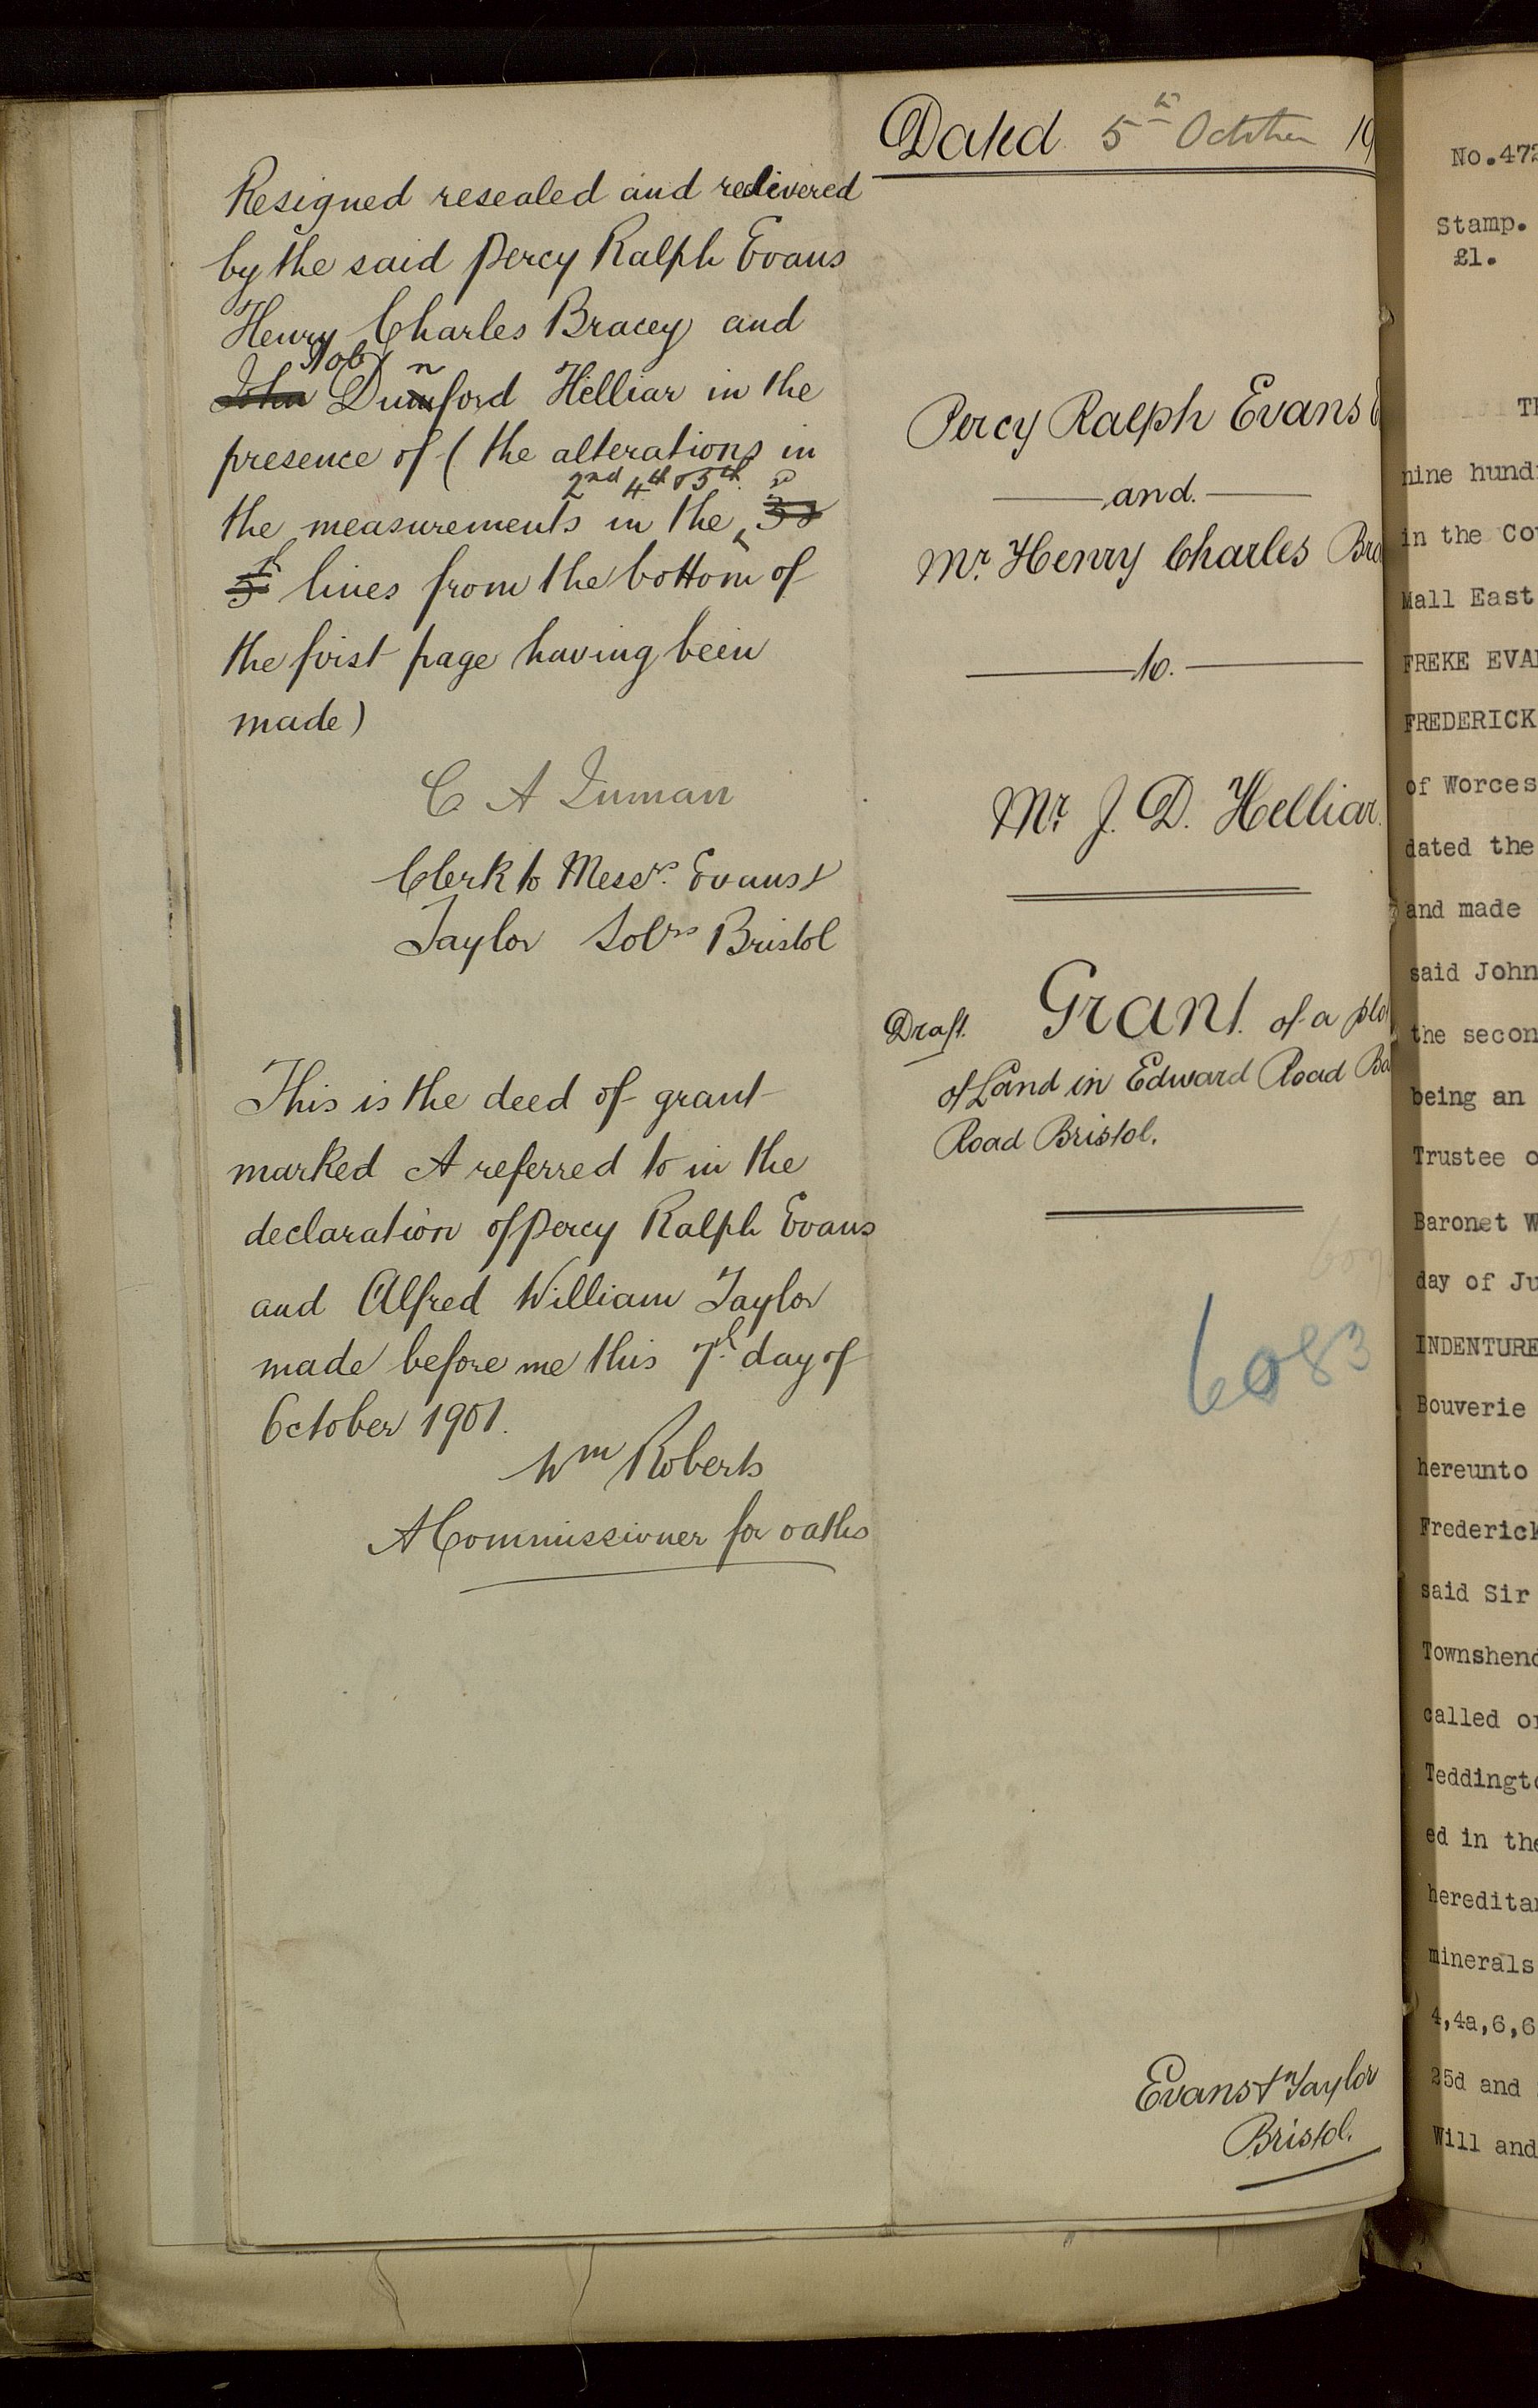 Resigned resealed and redelivered
by the said Percy Ralph Evans
Henry Charles Bracey and
Job n
John Dumford Helliar in the
presence of (the alterations in
2nd 4th & 5th
the measurements in the
lines from the bottom of
the first page having been
made)
C A Inman
Clerk to Messrs. Evans &
Taylor Solrs Bristol
This is the deed of grant
marked A referred to in the
declaration of Percy Ralph Evans
and Alfred William Taylor
made before me this 7th day of
October 1901.
Wm Roberts
A Commissioner for oaths
Dated 5th October 19
Percy Ralph Evans
and.
Mr. Henry Charles Bra
to.
Mr. J. D. Helliar.
Draft. Grant. of a plo
of Land in Edward Road Ba
Road Bristol.
6083
Evans & Taylor
Bristol.
No.472
Stamp.
£1.
Th
nine hund
in the Co
Mall East
FREKE EVA
FREDERICK
of Worces
dated the
and made
said John
the secon
being an
Trustee o
Baronet W
day of Ju
INDENTURE
Bouverie
hereunto
Frederick
said Sir
Townshend
called or
Teddingto
ed in the
hereditar
minerals
4,4a,6,6
25d and
Will and